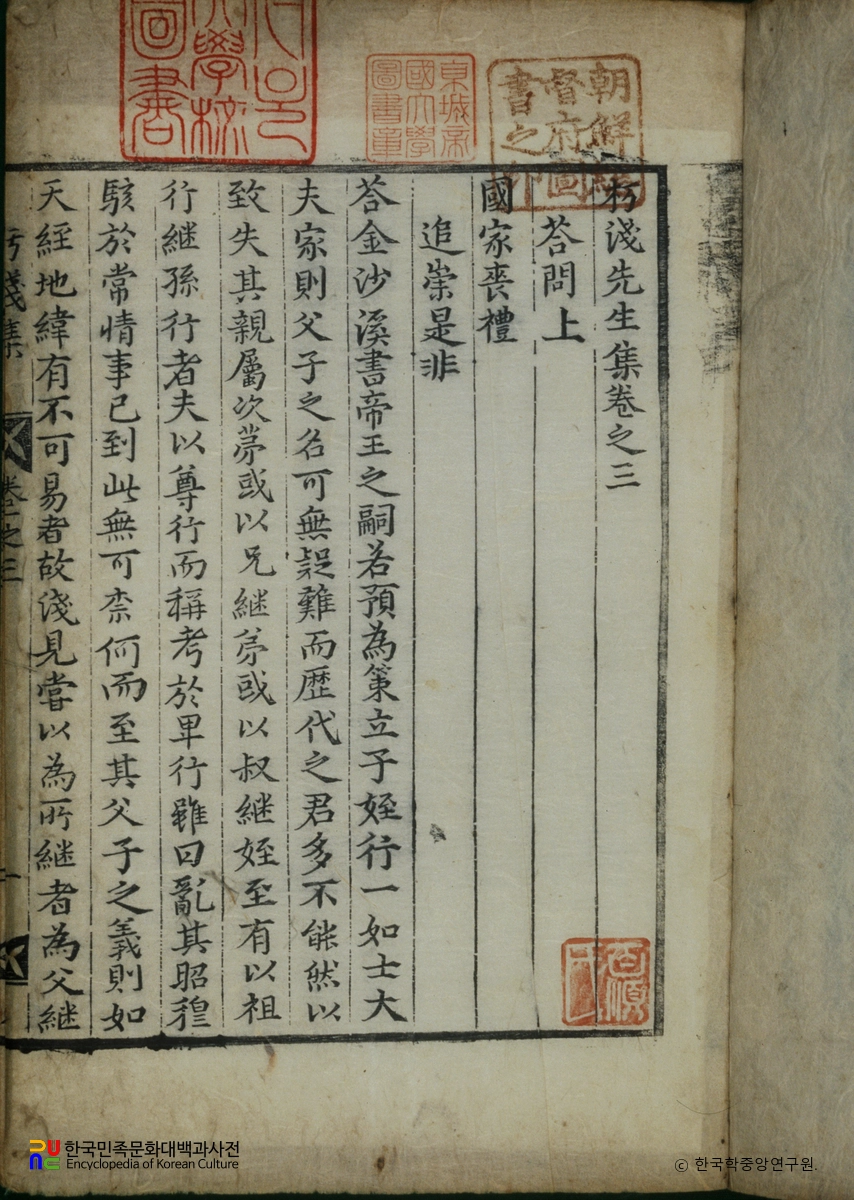 朽淺先生集卷之三
答問上
國家喪禮
追崇是非
答金沙溪書帝王之嗣若預為策立子姪行一如士大
夫家則父子之名可無疑難而歷代之君多不能然以
致失其親屬次苐或以兄継弟或以叔継姪至有以祖
行継孫行者夫以尊行而稱考於卑行雖曰亂其昭穆
駭於常情事已到此無可柰何而至其父子之義則如
天經地緯有不可易者故淺見嘗以為所継者為父継
朽淺集
卷之三
一
朝鮮總督府圖書之印
京城帝國大學圖書章
大學校圖書
한국민족문화대백과사전
Encyclopedia of Korean Culture
ⓒ 한국학중앙연구원.